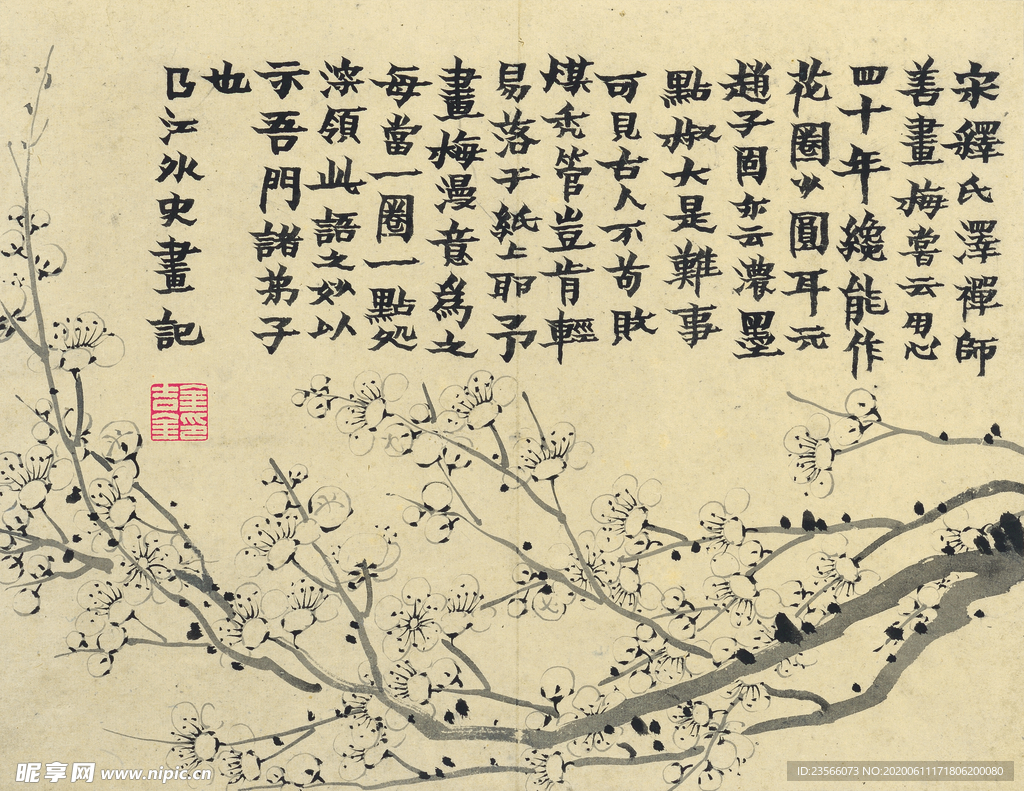 宋釋氏澤禪師
善畫梅嘗云用心
四十年纔能作
花圈少圓耳元
趙子固亦云濃墨
點椒大是難事
可見古人不苟敗
煤秃管豈肯輕
易落于紙上耶予
畫梅漫意爲之
每當一圈一點処
深領此語之妙以
示吾門諸弟子
也
曲江外史畫記
金吉金印
昵享网 www.nipic.cn
ID:23566073 NO:20200611171806200080